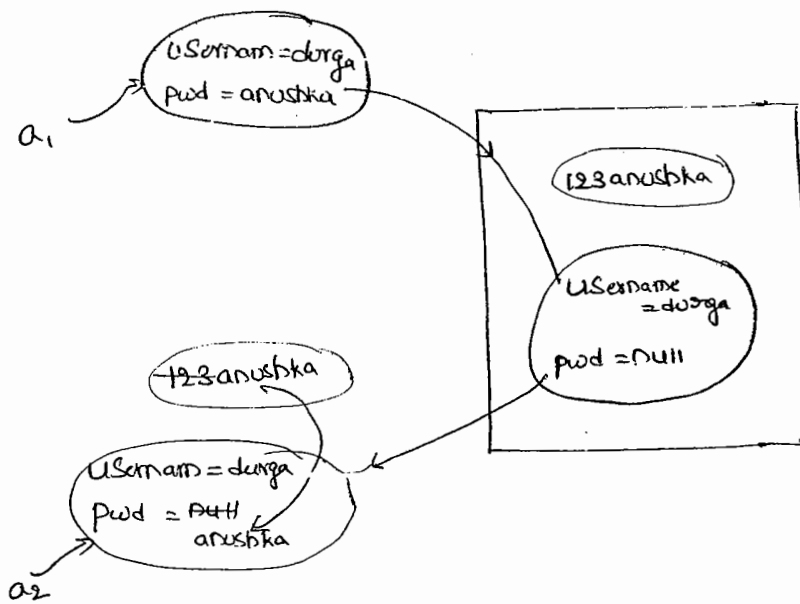 Usernam=durga
pwd = anushka
a1
123anushka
Username
=durga
pwd = null
123anushka
Usernam = durga
Pwd = null
anushka
a2